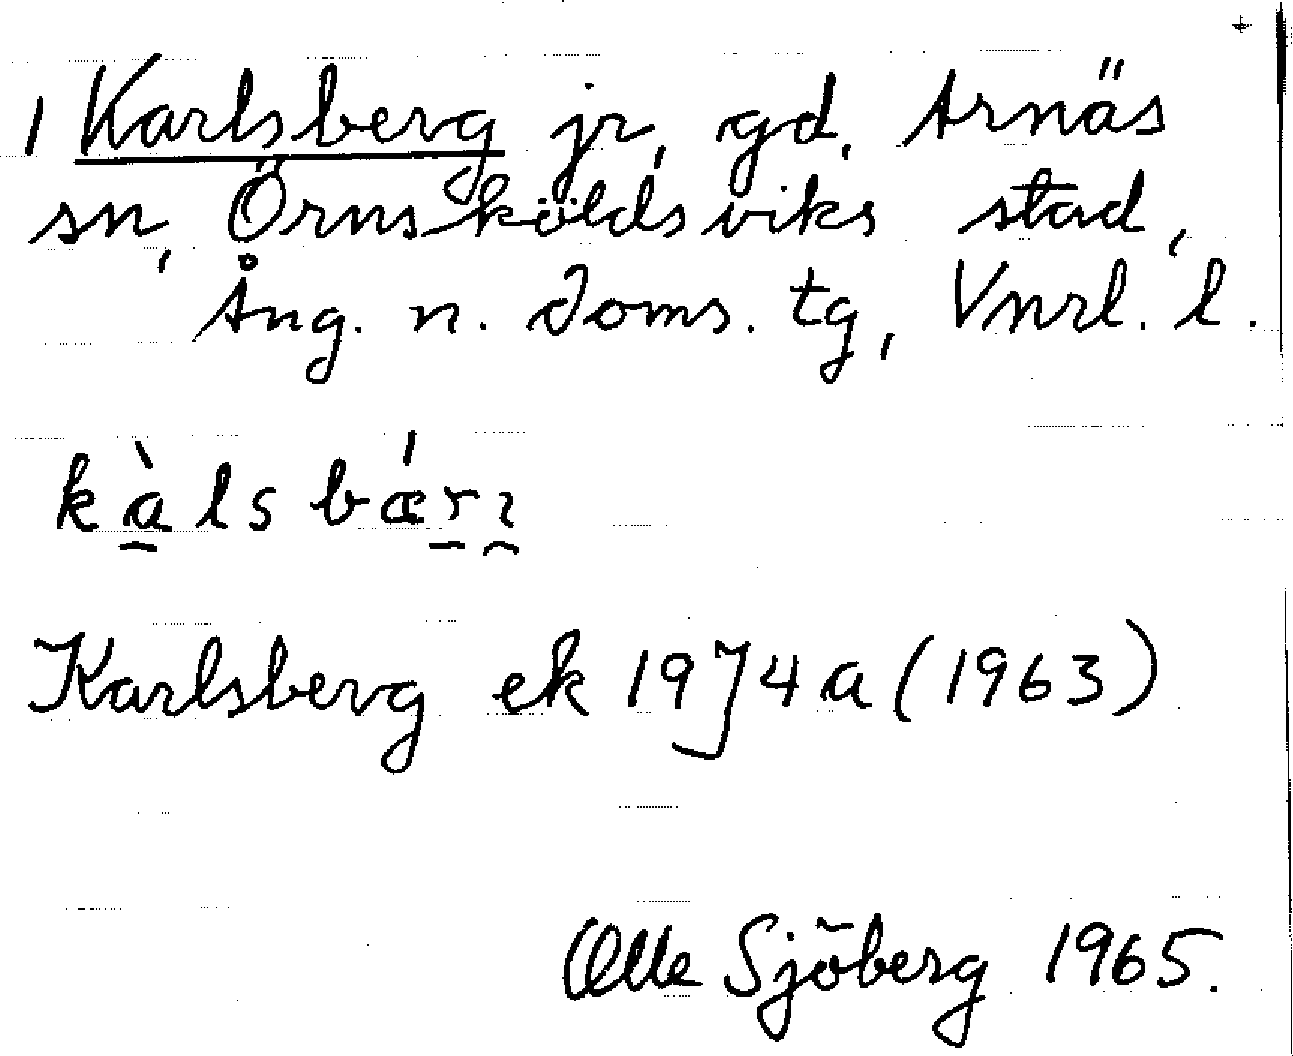 1 Karlsberg jr, gd, Arnäs
sn, Örnsköldsviks stad,
Ång. n. doms. tg, Vnrl. l.
kàlsbǽrı
Karlsberg ek 19J4a (1963)
Olle Sjöberg 1965.